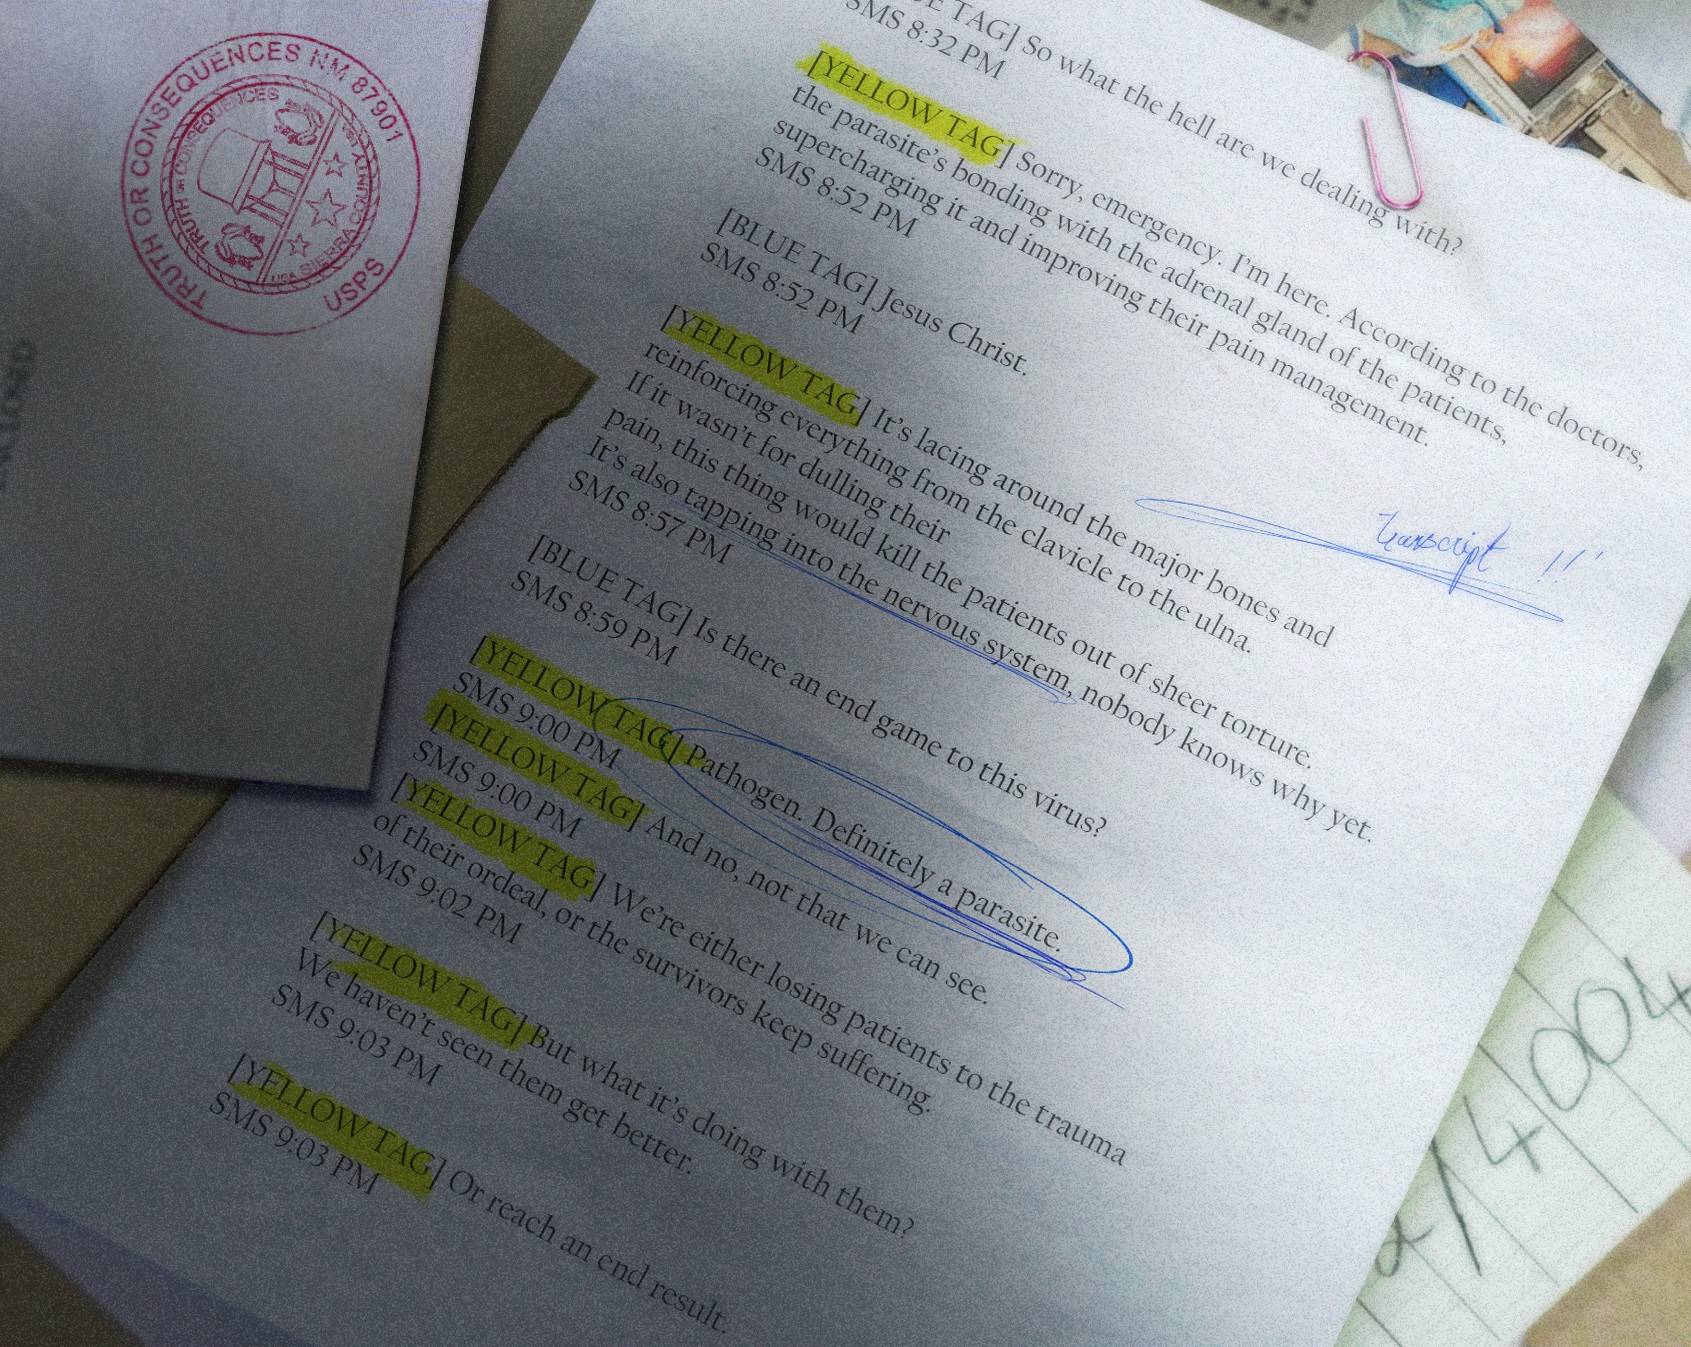 TRUTH OR CONSEQUENCES NM 87901
USPS
TRUTH OR CONSEQUENCES
USA SIERRA COUNTY
UE TAG] So what the hell are we dealing with?
SMS 8:32 PM
[YELLOW TAG] Sorry, emergency. I'm here. According to the doctors,
the parasite's bonding with the adrenal gland of the patients,
supercharging it and improving their pain management.
SMS 8:52 PM
[BLUE TAG] Jesus Christ.
SMS 8:52 PM
[YELLOW TAG] It's lacing around the major bones and
reinforcing everything from the clavicle to the ulna.
If it wasn't for dulling their
pain, this thing would kill the patients out of sheer torture.
It's also tapping into the nervous system, nobody knows why yet.
SMS 8:57 PM
transcript !!
[BLUE TAG] Is there an end game to this virus?
SMS 8:59 PM
[YELLOW TAG] Pathogen. Definitely a parasite.
SMS 9:00 PM
[YELLOW TAG] And no, not that we can see.
SMS 9:00 PM
[YELLOW TAG] We're either losing patients to the trauma
of their ordeal, or the survivors keep suffering.
SMS 9:02 PM
[YELLOW TAG] But what it's doing with them?
We haven't seen them get better.
SMS 9:03 PM
[YELLOW TAG] Or reach an end result.
SMS 9:03 PM
/4004